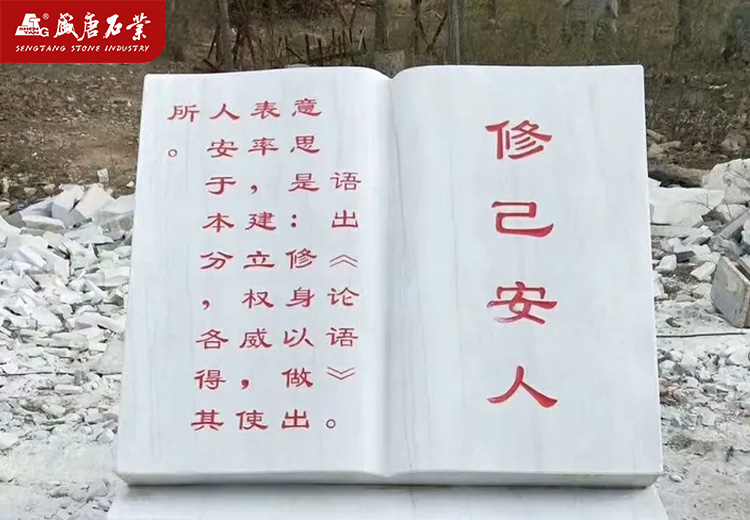 盛唐石業
SENGTANG STONE INDUSTRY
修己安人
语出《论语》。
意思是：修身以做出
表率，建立权威，使
人安于本分，各得其
所。